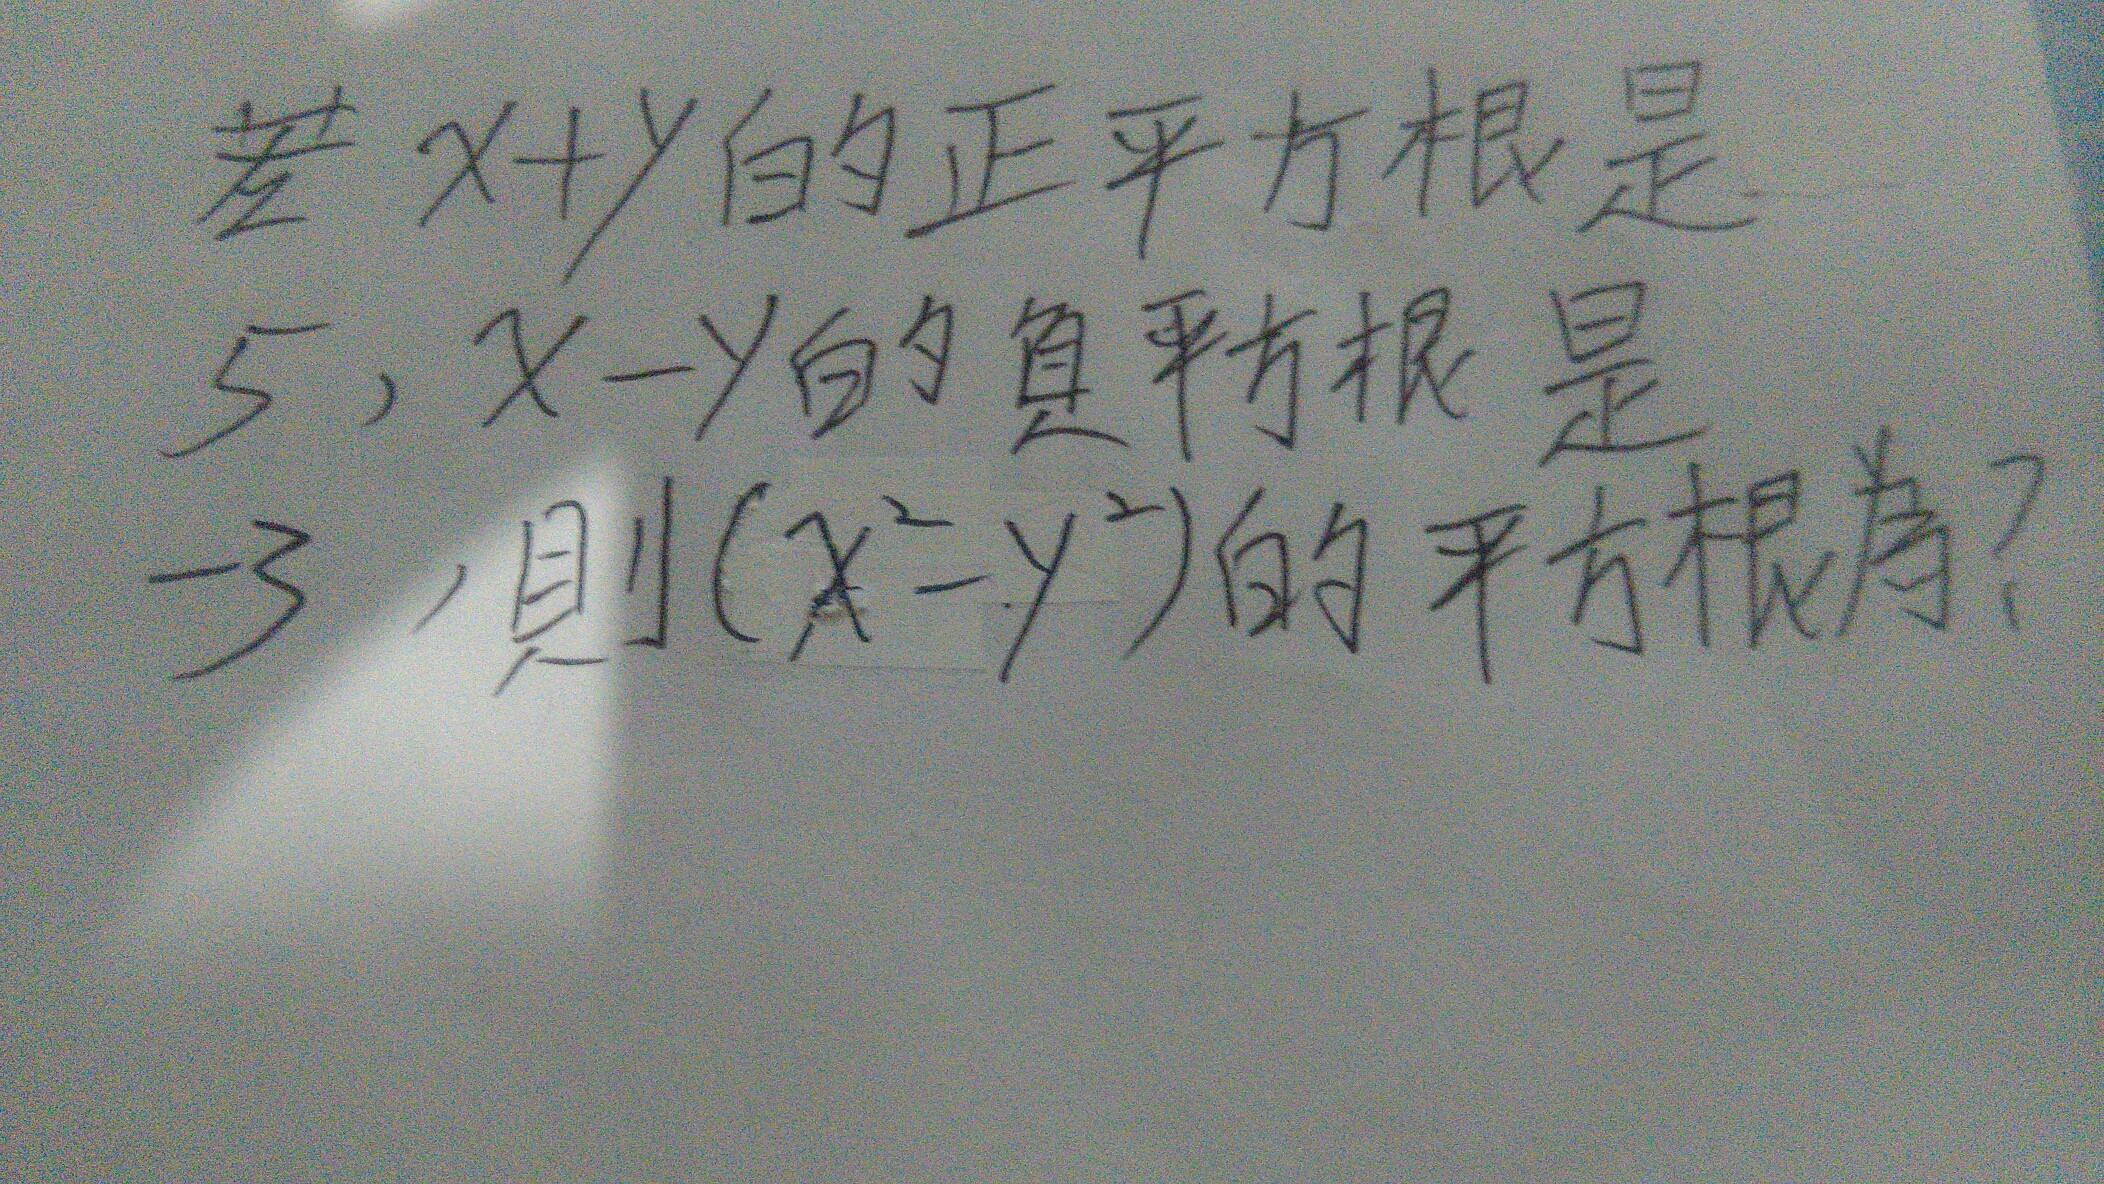 若 x+y的正平方根是
5, x-y的負平方根是
-3, 則(x²-y²)的平方根為?